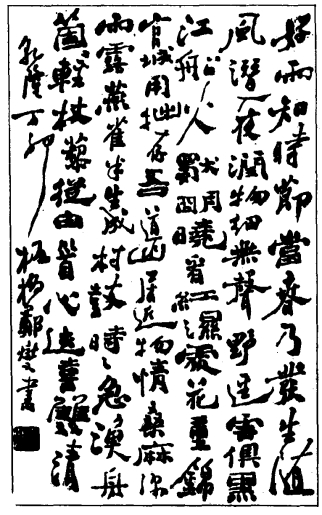 好雨知時節當春乃發生隨
風潛入夜潤物細無聲野逕雲俱黑
江船火獨明曉看紅濕處花重錦
官城用拙存吾道幽居近物情桑麻深
雨露燕雀半生成村鼓時〻急漁舟
箇〻輕杖藜從白首心迹喜雙清
乾隆丁卯 板橋鄭燮書